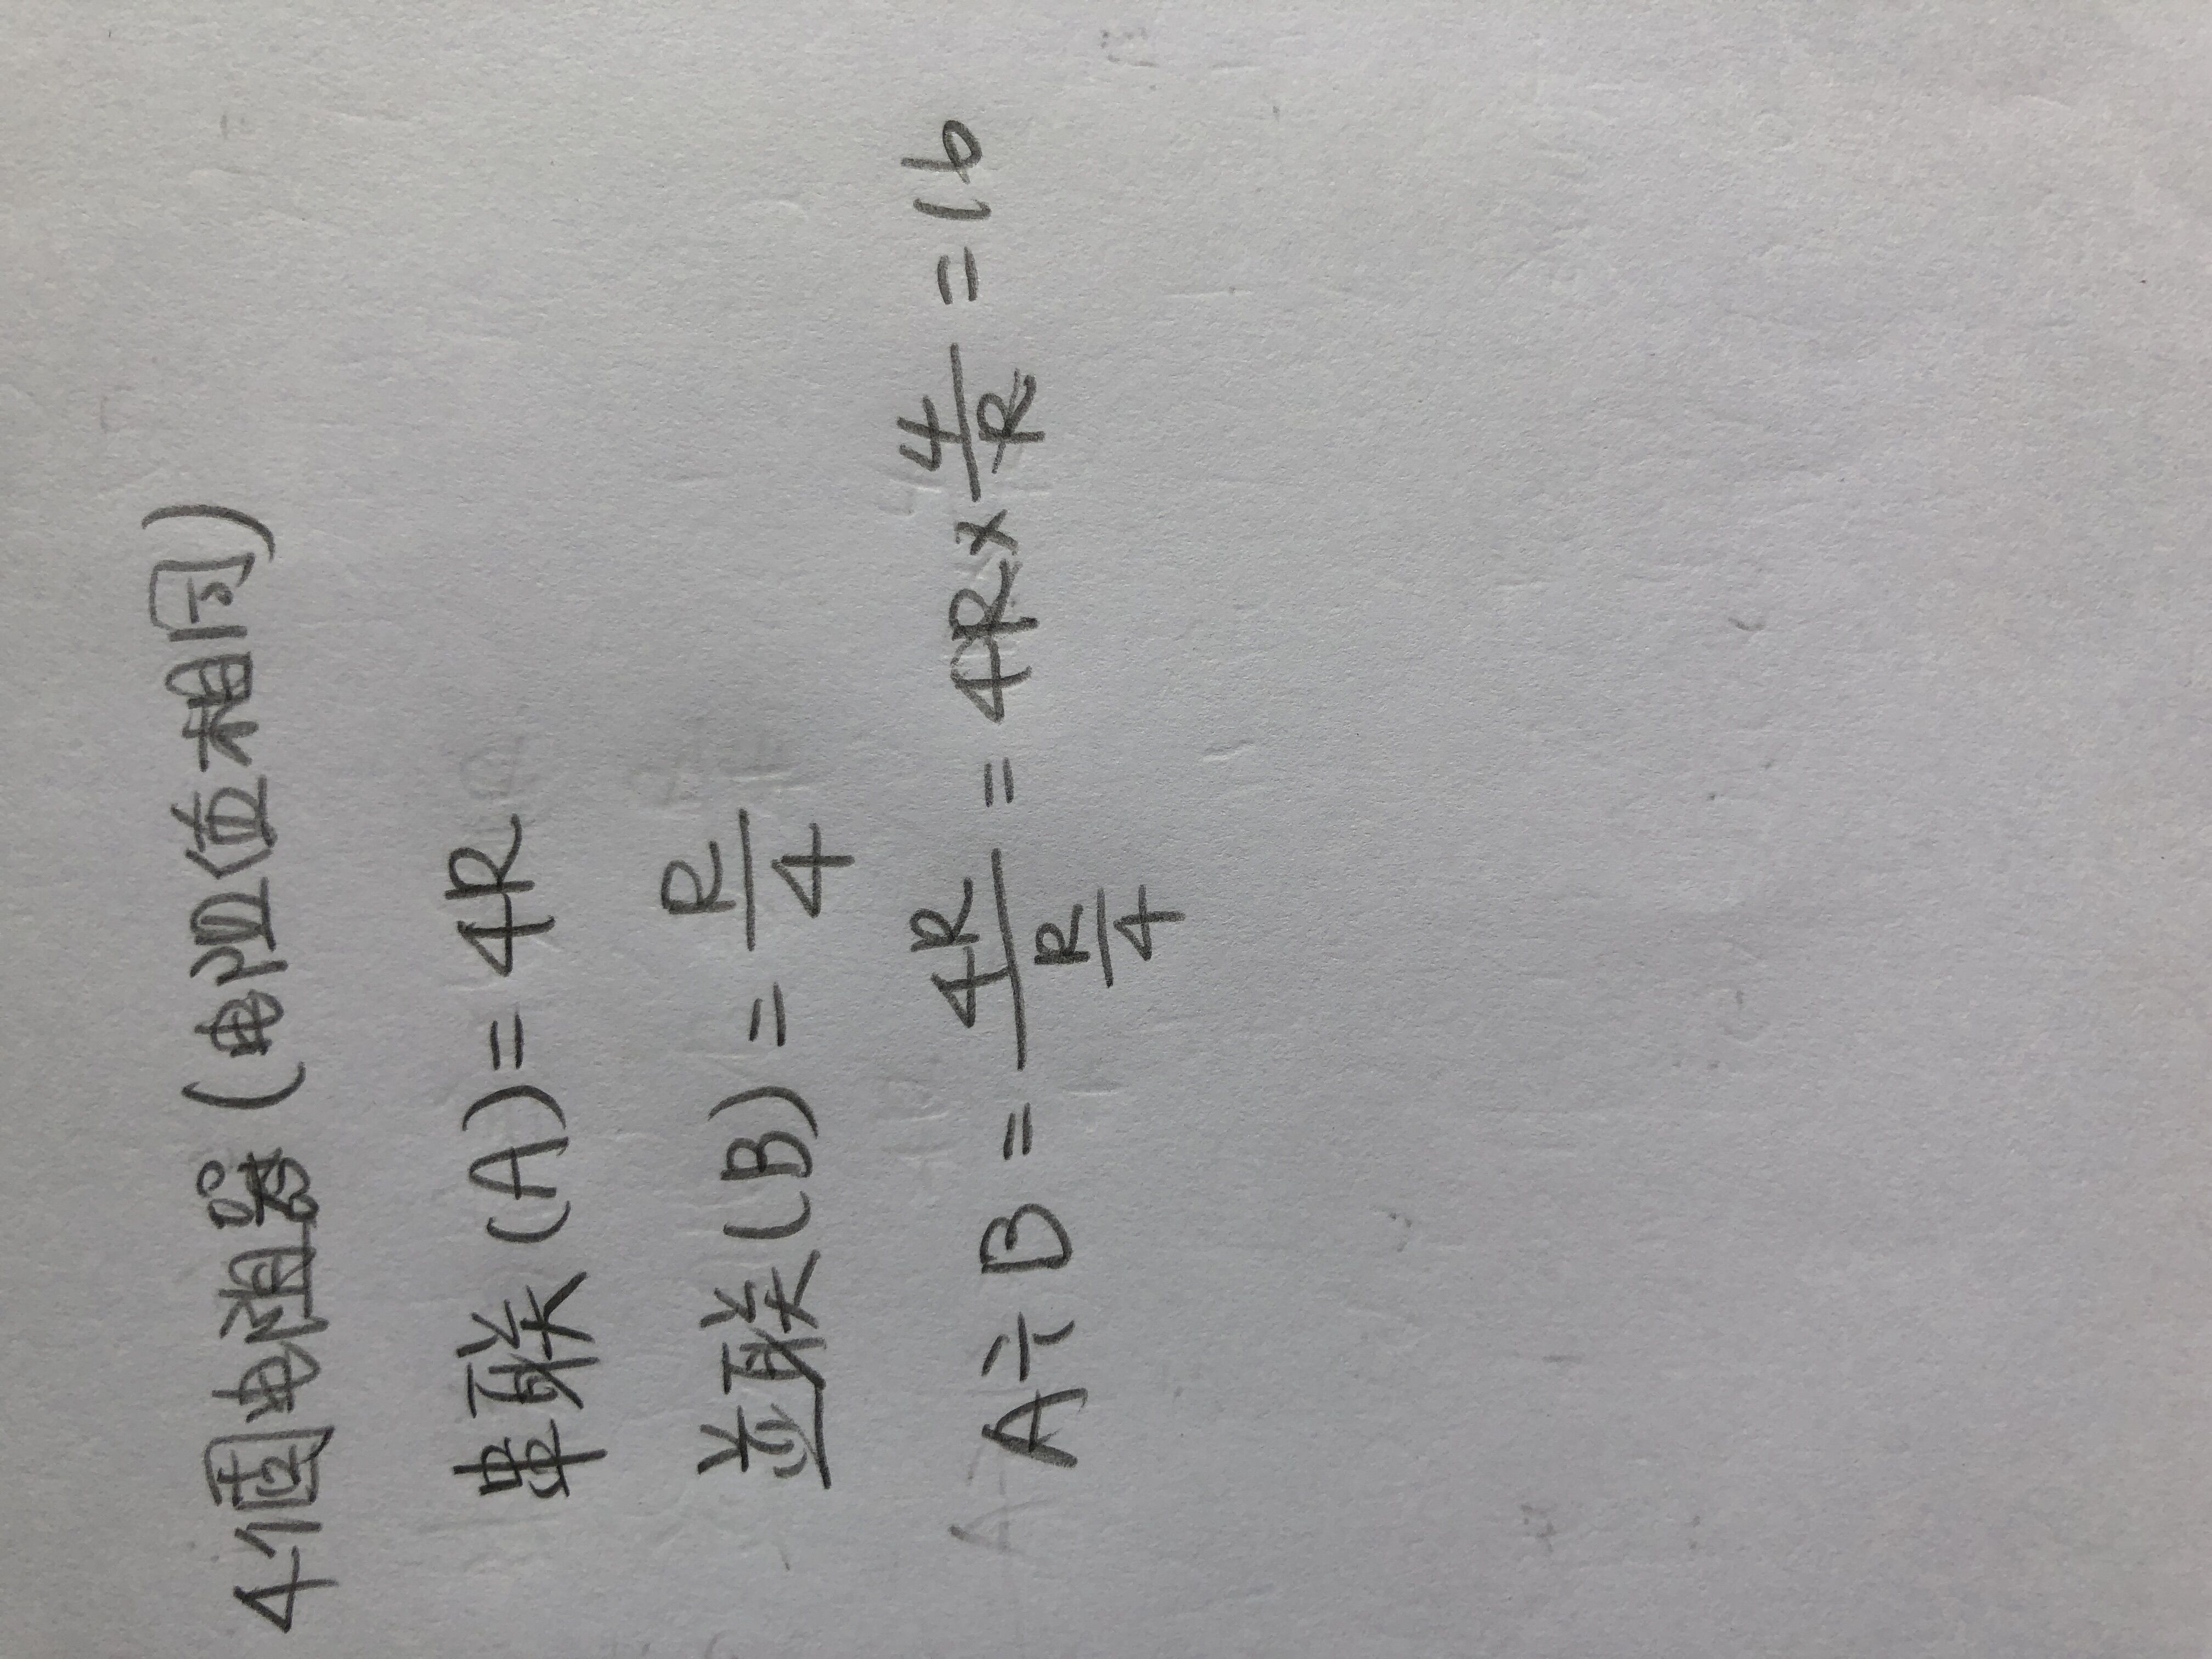 4個电阻器(电阻值相同)
串联(A)=4R
並联(B)=R/4
A÷B=4R/(R/4)=4R×4/R=16